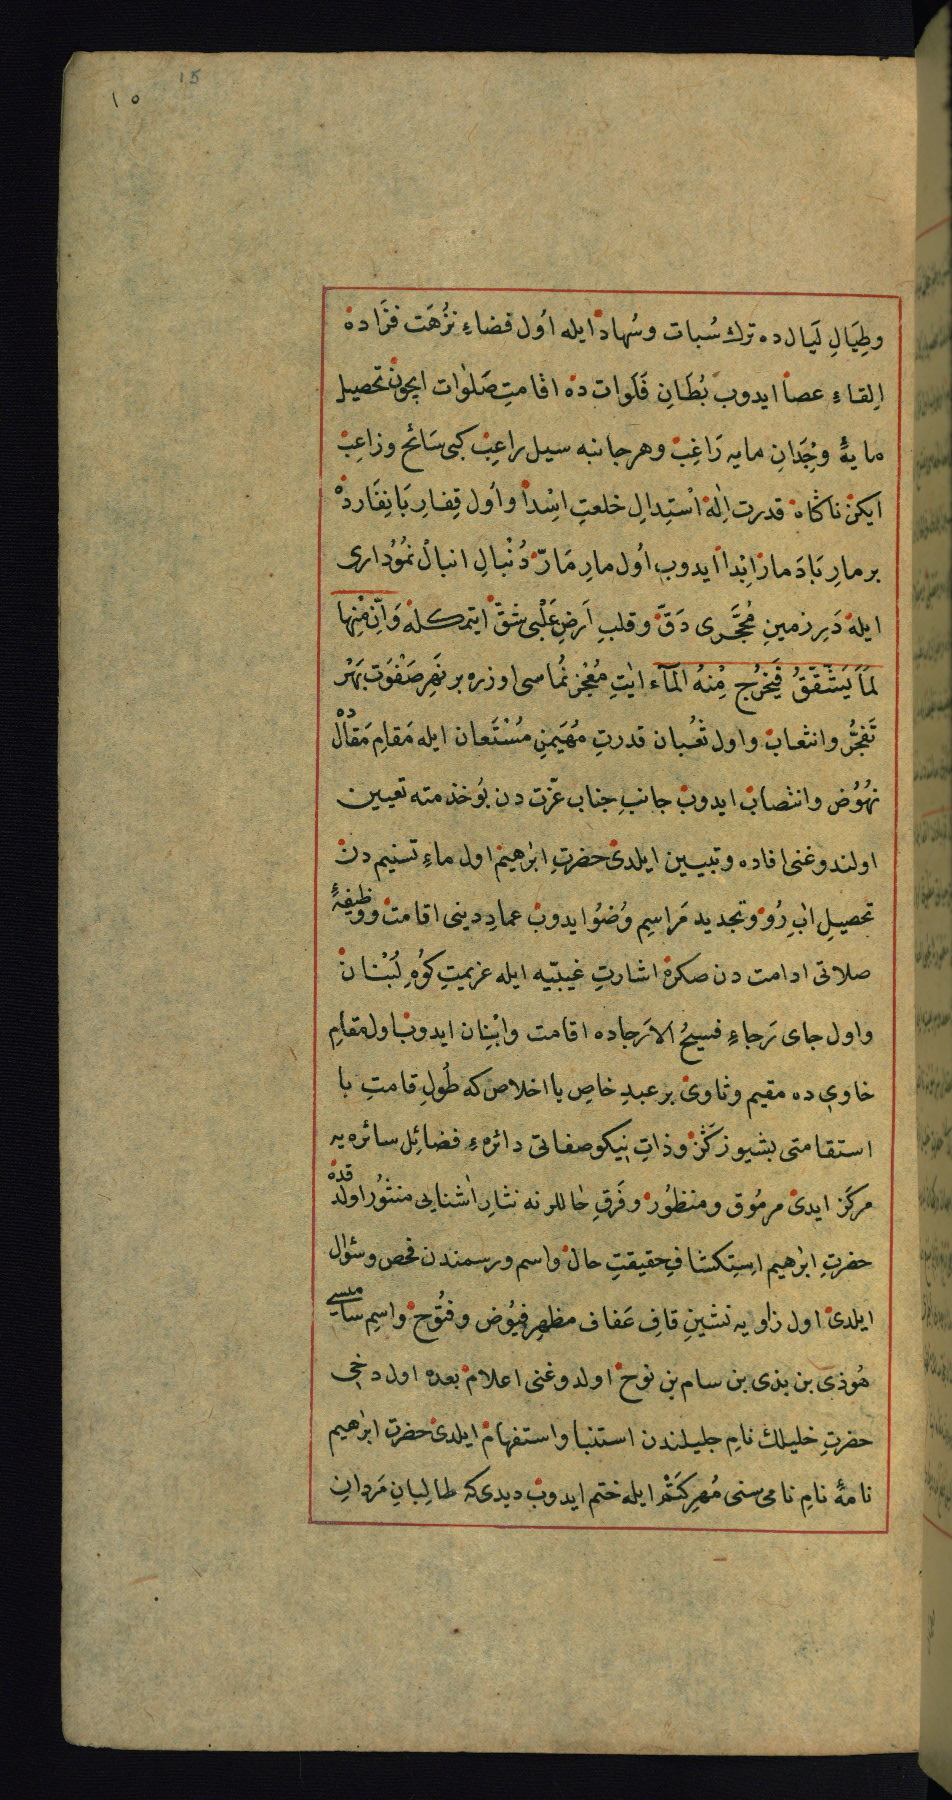 15
١٥
وطِيَالِ لَيَال ده ترك سُبات وسُهاد ايله اول فضاءِ نزُهَت فزَا ده
اِلقاءِ عصا ايدوب بُطَانِ فَلَوات ده اقامتِ صَلَوات ايچون تحصيل
مايهٔ وِجْدَانِ مايه رَاغِب وهر جانبه سيل راعِب كبى سَائح وزاعِب
ايكن ناكاه قدرت اِلٰه اسْتِدالِ خلعتِ اسْدا واُول قِفارِ بَانِفَار ده
بر مارِ بَادَ مار اِبْدا ايدوب اُول مارِ مَارّ دُنْبالِ انبال نمُوُدارى
ايله دَبِر زمينِ مُحَجَّرى دَقّ وقلبِ اَرضِ عَلْبى شقّ ايتمكله وَاِنَّ مِنْهَا
لَمَا يَشَّقَّقُ فَيَخْرُجُ مِنْهُ الْمَآء ايتِ مُعْجِز نُماسى اوزره بر نهرِ صَفْوَت بَهْر
تَفَجُّر وانثعاب واول ثعُبان قدرتِ مُهَيمنِ مُسْتَعان ايله مَقامِ مَقال ده
نهُوُض وانتصاب ايدوب جانبِ جنابِ عزّت دن بُو خدمته تعيين
اولندوغنى افاده وتبيين ايلدى حضرتِ ابرٰهيم اول ماءِ تسنيم دن
تحصيلِ ابِ رُو وتجديد مَراسِمِ وُضُو ايدوب عمادِ دينى اقامت ووظيفهٔ
صلاتى ادامت دن صكره اشارتِ غيبيّه ايله عزيمتِ كوُهِ لُبْنان
واول جاى رَجاءِ فسيحُ الارَجا ده اقامت وابْنِان ايدوب اول مقامِ
خاوى ده مقيم وثاوى بر عبدِ خاصِ با اخلاص كه طُولِ قامتِ با
استقامتى بشيوز كَز وذاتِ نيكو صفاتى دائرهءِ فضائِل سائره يه
مركَز ايدى مرمُوق ومنظُور وفَرقِ حاللرنه نثارِ اشنايى منثوُر اولدقده
حضرتِ ابرٰهيم استِكشافِ حقيقتِ حال واسم ورسمندن فحص وسُؤال
ايلدى اول زاويه نشينِ قافِ عَفاف مظهرِ فيُوُض وفتُوُح واسِم سامسى
هُوذى بن يذى بن سام بنِ نوح اولدوغنى اعلام بعده اول دخى
حضرتِ خليلك نامِ جليلندن استنبا واستفهام ايلدى حضرت ابرٰهيم
نامهٔ نامِ نامى سنى مُهرِ كَتْم ايله ختم ايدوب ديدى كه طالِبانِ مَردانِ